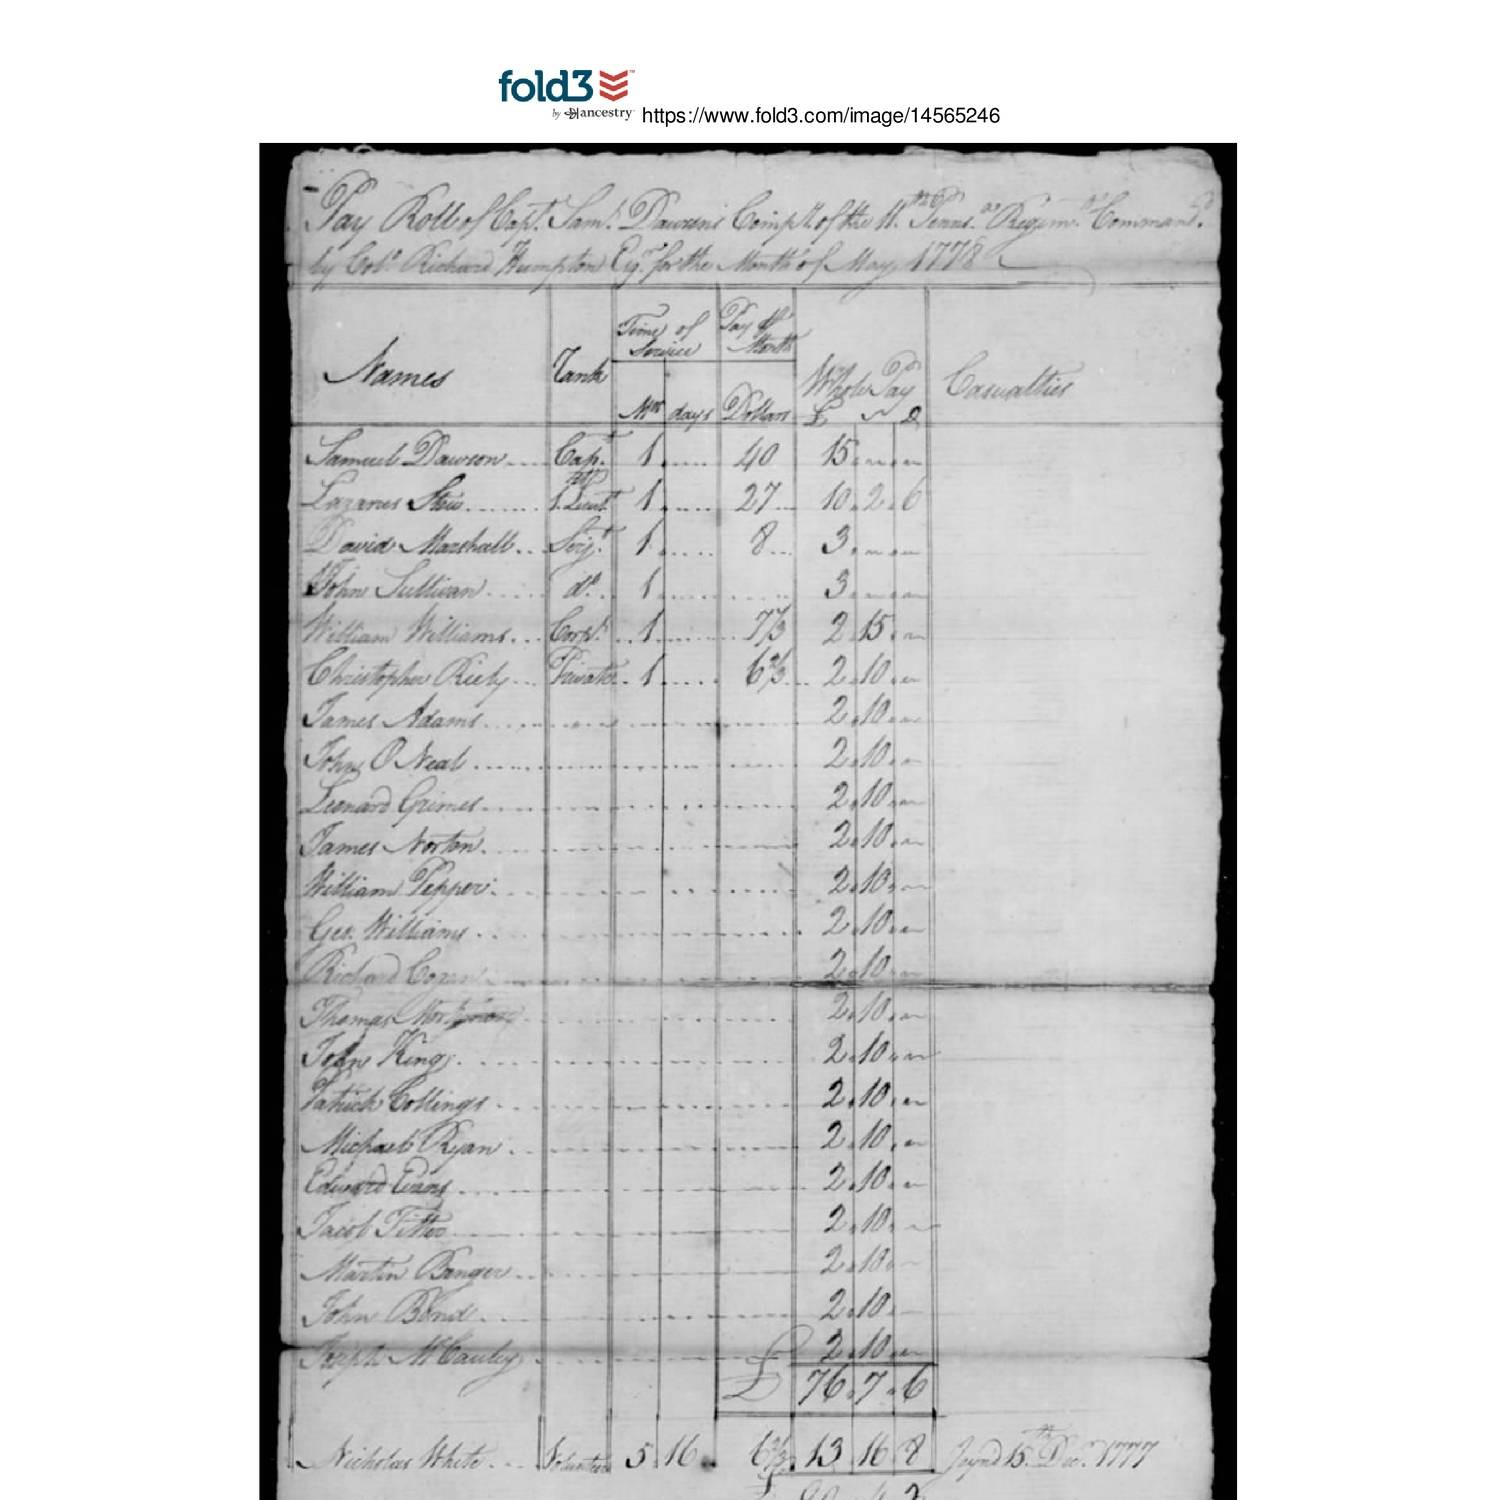 fold3
by ancestry https://www.fold3.com/image/14565246
Pay Roll of Capt. Saml. Dawson's Compy. of the 11th Pennsa. Regimt. Command.
by Colo. Richard Humpton Esqr. for the Month of May 1778
Names Rank Time of Service Pay pr Month Whole Pay Casualties
Mos days Dollars £ s D
Samuel Dawson Capt. 1 40 15
Lazarus Stow 1. Lieut. 1 27 10 2 6
David Marshall Serjt. 1 8 3
John Sullivan do. 1 3
William Williams Corpl. 1 7 1/3 2 15
Christopher Riely Private 1 6 2/3 2 10
James Adams 2 10
John O Neal 2 10
Leonard Grimes 2 10
James Norton 2 10
William Pepper 2 10
Geo. Williams 2 10
Richard 2 10
Thomas 2 10
John King 2 10
Patrick Collings 2 10
Michael Ryan 2 10
Edward Evans 2 10
Jacob 2 10
Martin Banger 2 10
John Bond 2 10
Joseph McCauley 2 10
£ 76 7 6
Nicholas White Volunteer 5 16 6 2/3 13 16 8 Joynd 15th Decr. 1777